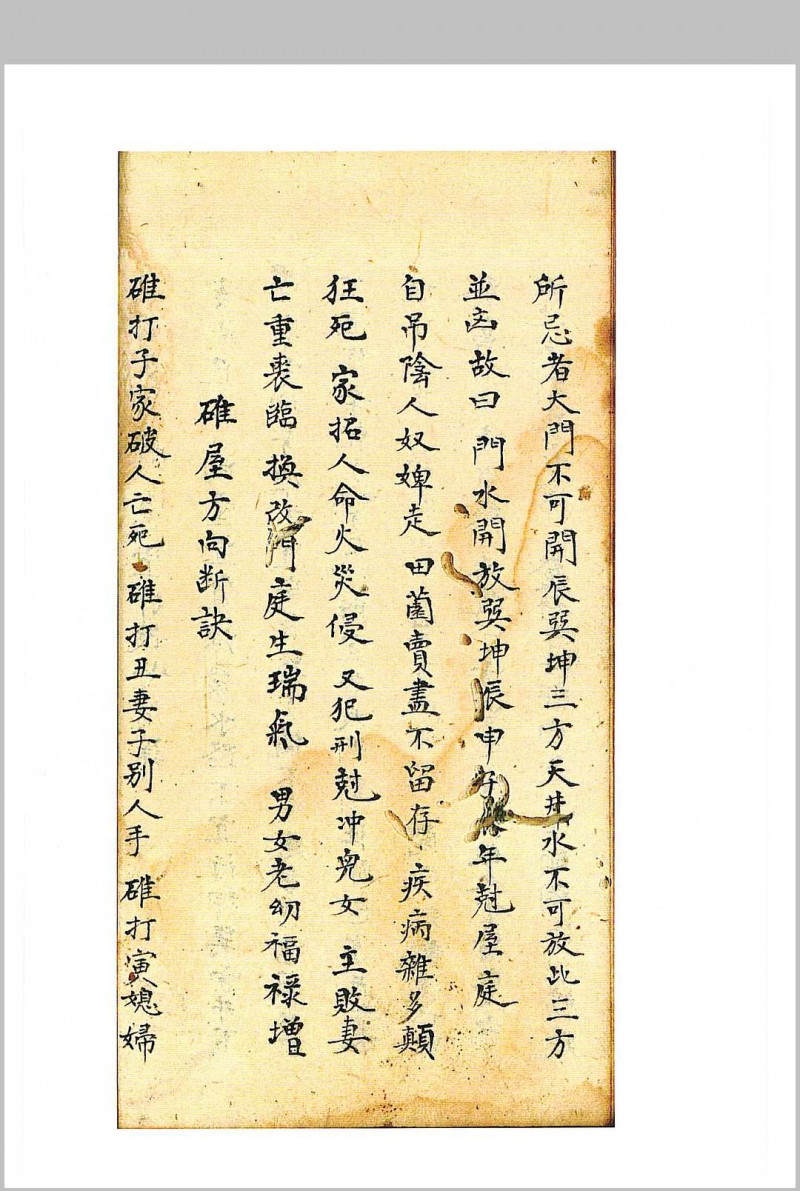 所忌者大門不可開辰巽坤三方天井水不可放此三方
並凶故曰門水開放巽坤辰申子年尅屋庭
自吊陰人奴婢走田薗賣盡不留存疾病雜多顛
狂死家招人命火災侵又犯刑尅冲兒女主敗妻
亡重喪臨換改門庭生瑞氣男女老幼福祿增
碓屋方向断訣
碓打子家破人亡死碓打丑妻子別人手碓打寅媳婦